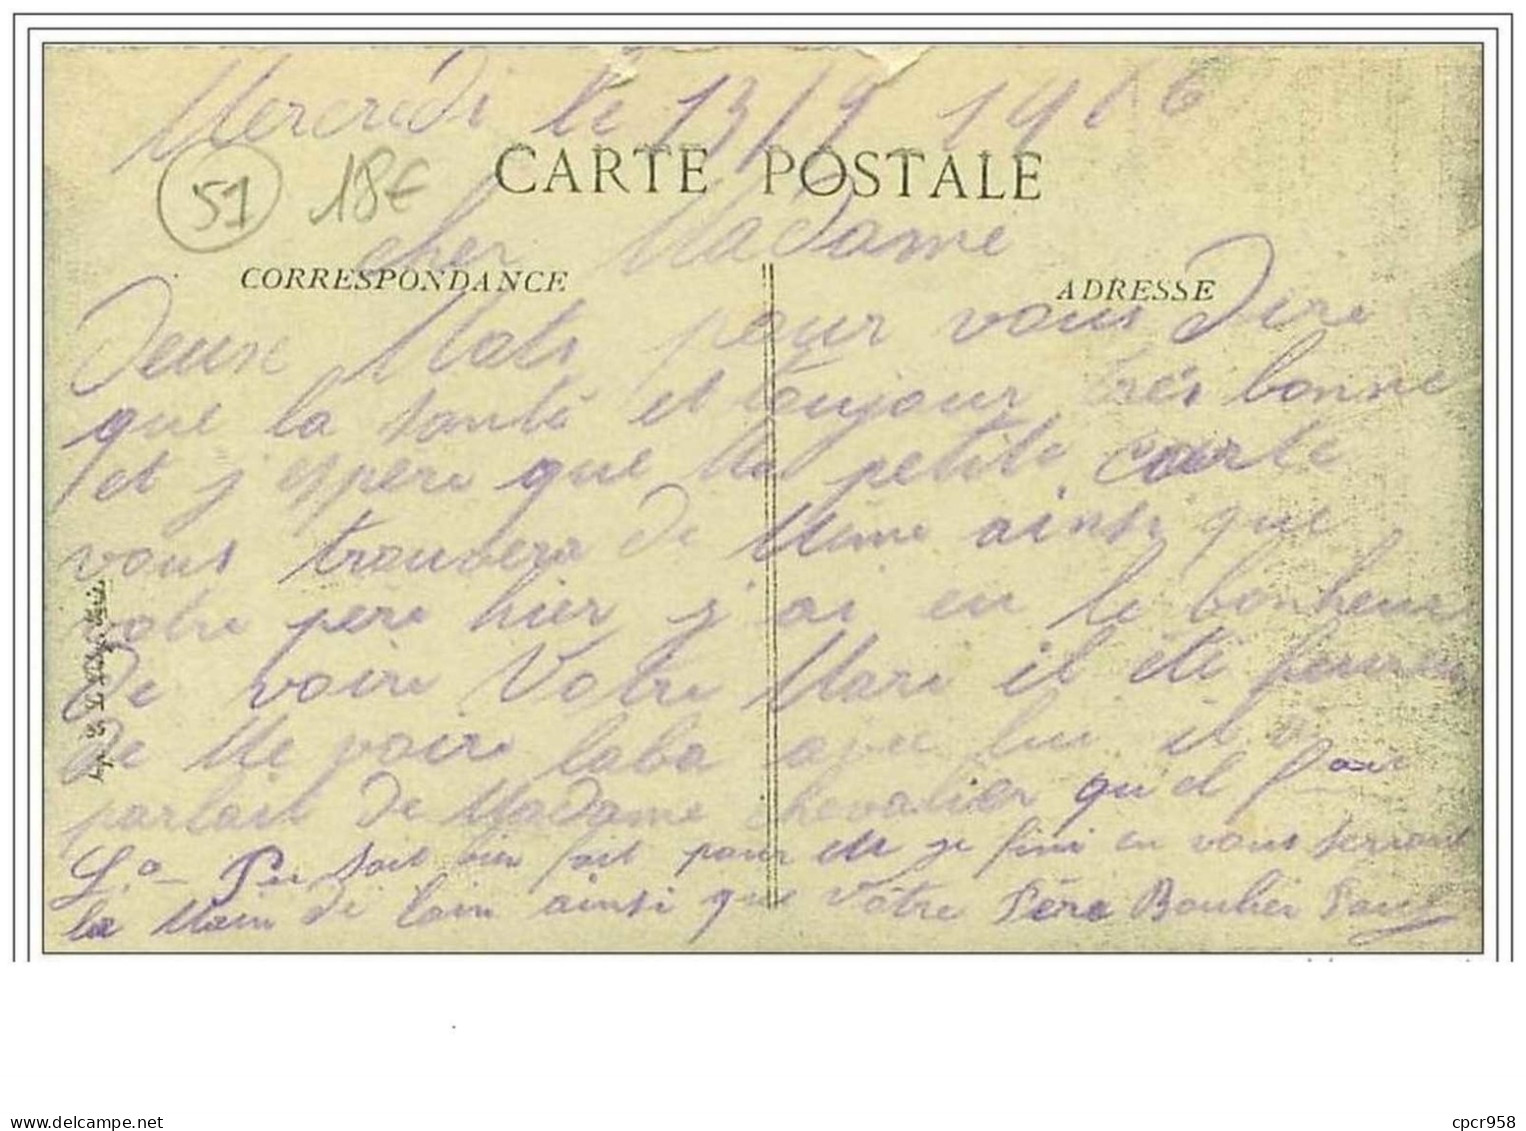 Mercredi le 13/9 1916
CARTE POSTALE
51 18€
cher Madame
CORRESPONDANCE
ADRESSE
Deux Mots pour vous dire
que la santé et toujour très bonne
et j espere que Ma petite carte
vous trouvera de Même ainsi que
votre pere hier j'ai eu le bonheur
De voire Votre Mari il été heureux
de Me voire laba avec lui il a
parlait de Madame chevalier qu'el
soit bien fait pour je fini en vous serrant
la Main de loin ainsi que Votre Père Boulier Paul
cpcr958
delcampe.net